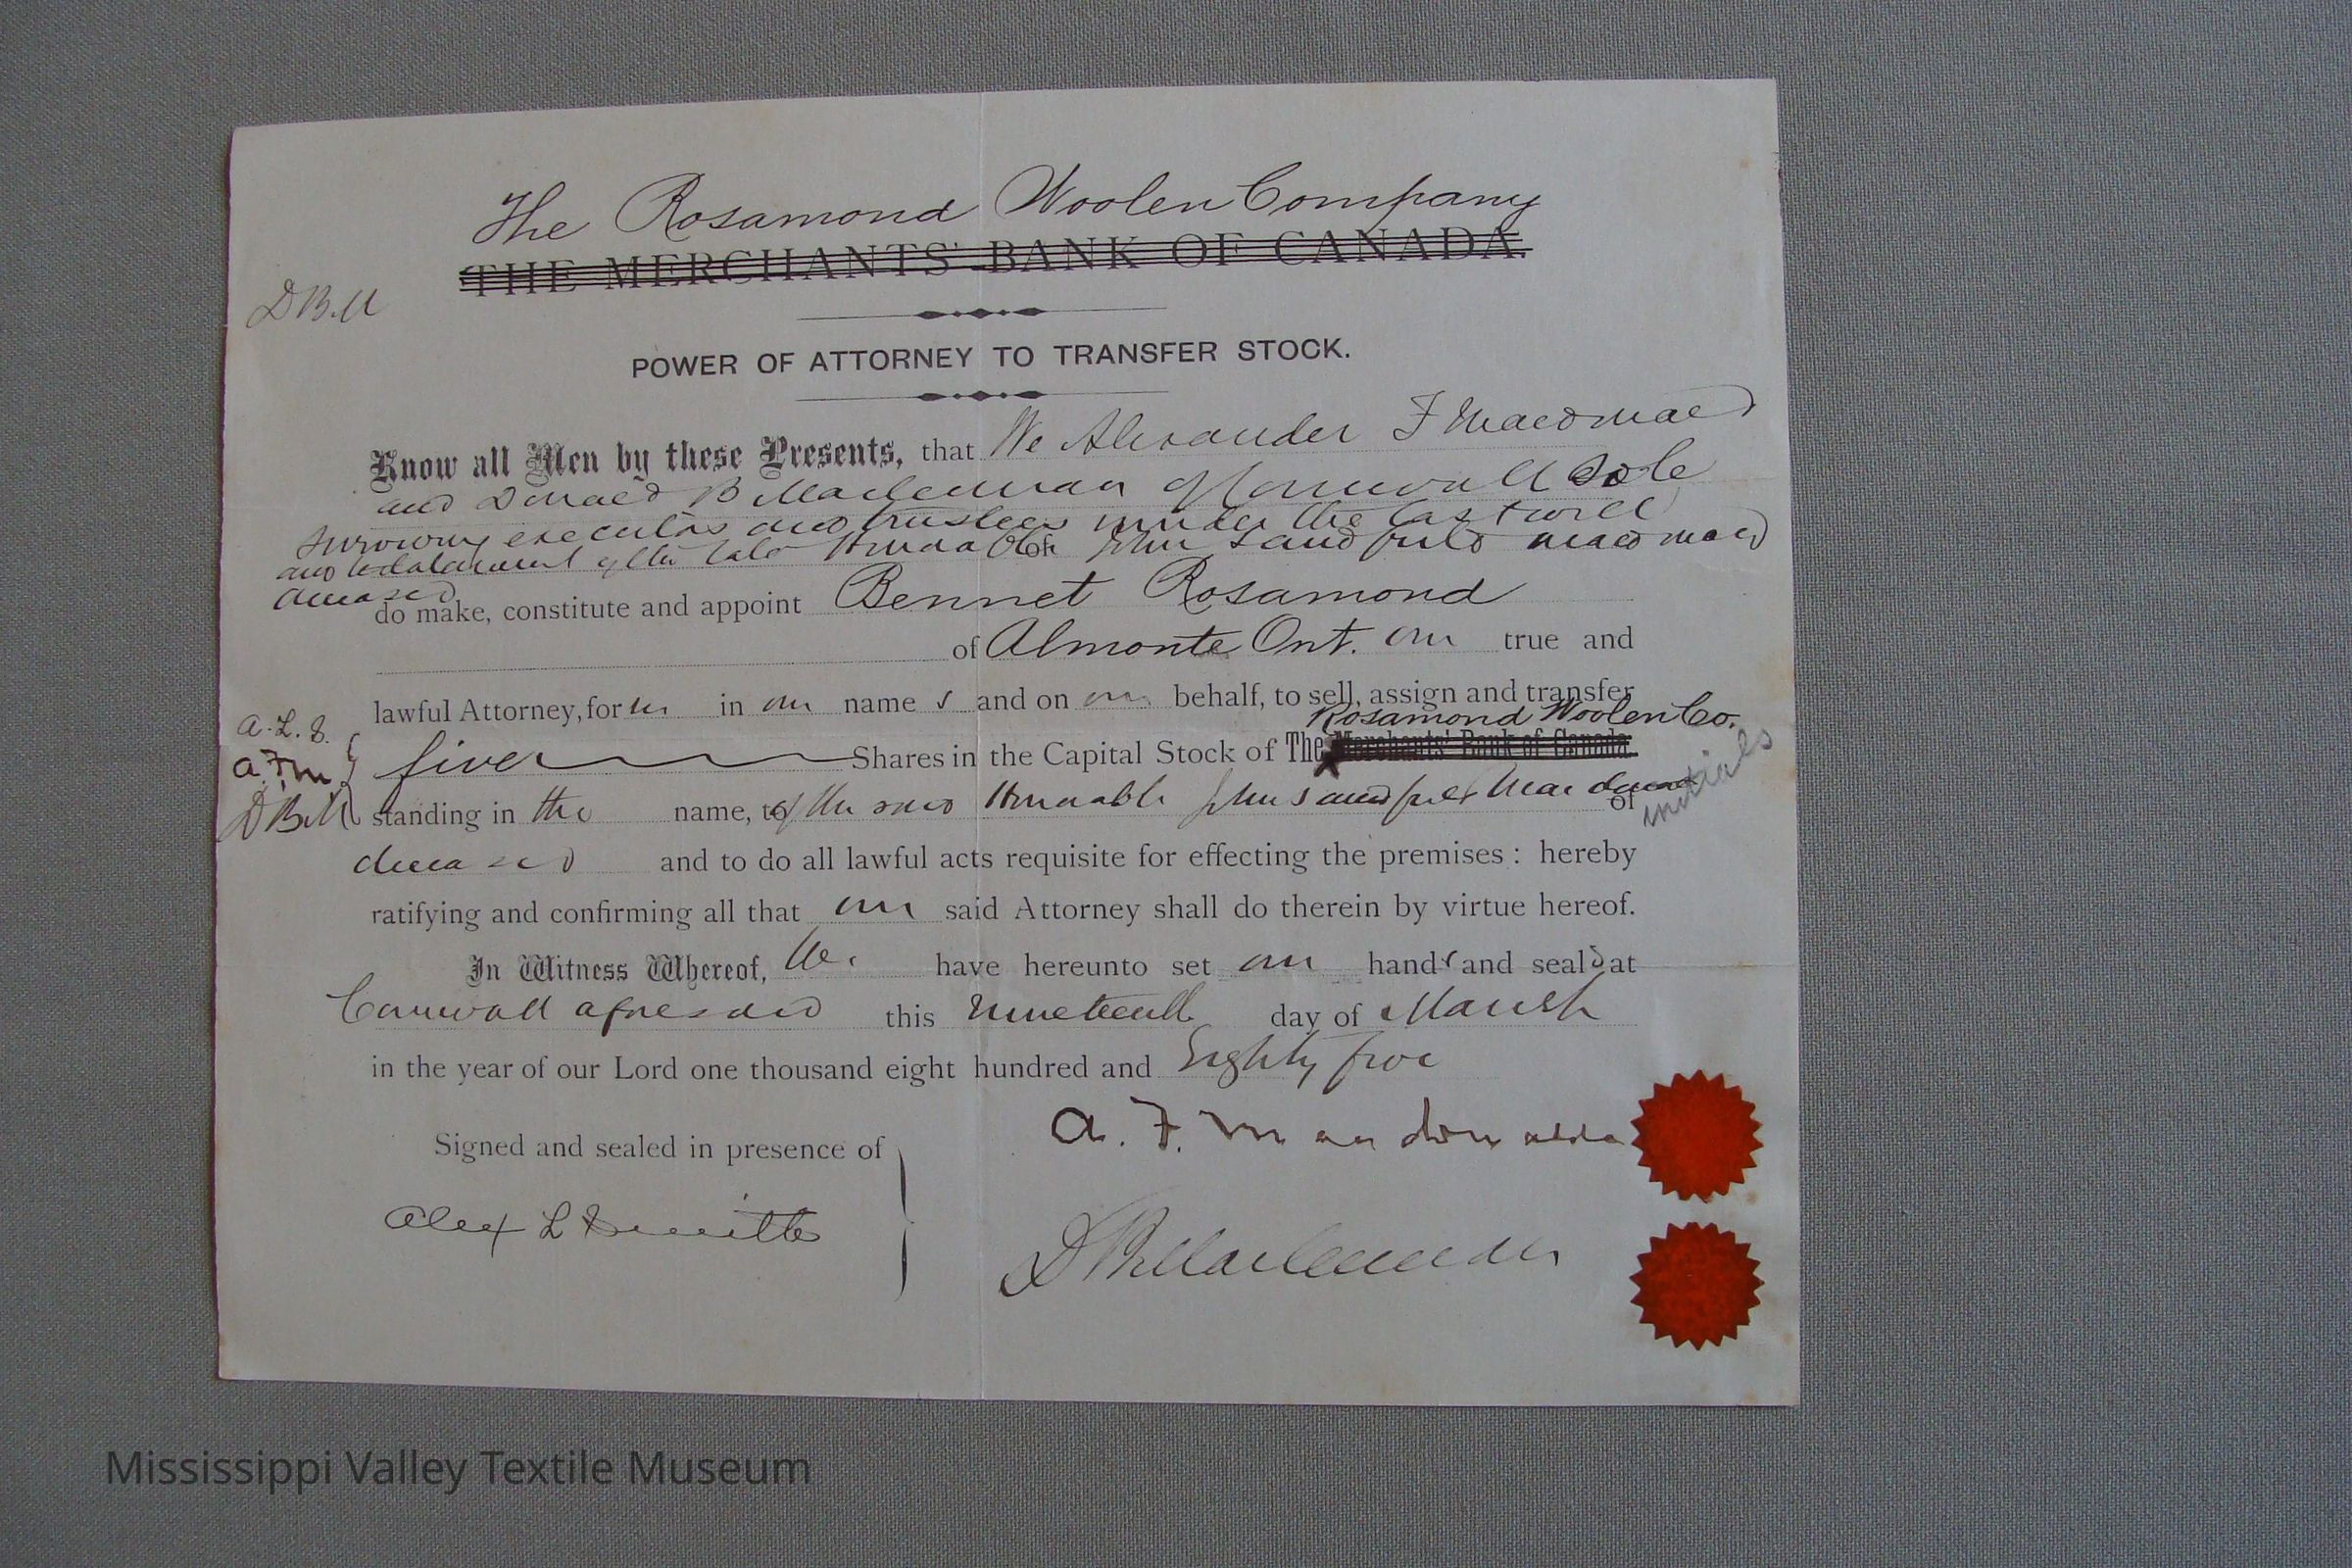 The Rosamond Woolen Company
THE MERCHANTS' BANK OF CANADA.
D B. M
POWER OF ATTORNEY TO TRANSFER STOCK.
Know all Men by these Presents, that We Alexander F Macdonald
and Donald B Maclennan of Cornwall Sole
surviving executors and trustees under the last will
and testatament of the late Honorable of John Sandfield Macdonald
deceased
do make, constitute and appoint Bennet Rosamond
of Almonte Ont. our true and
lawful Attorney, for us in our name s and on our behalf, to sell, assign and transfer
Rosamond Woolen Co.
A. L. S.
five Shares in the Capital Stock of The Merchants' Bank of Canada
A. F. M
initials
standing in the name, to of the said Honorable John Sandfield Macdonald of
D B. M
deceased and to do all lawful acts requisite for effecting the premises : hereby
ratifying and confirming all that our said Attorney shall do therein by virtue hereof.
In Witness Whereof, We have hereunto set our hand s and seal s at
Cornwall aforesaid this nineteenth day of March
in the year of our Lord one thousand eight hundred and Eighty five
Signed and sealed in presence of
A. F. Macdonald
Alex L Smith
D B Maclennan
Mississippi Valley Textile Museum